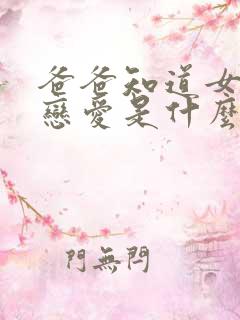 爸爸知道女
戀愛是什麼
門無閂